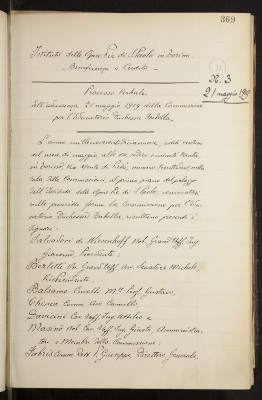 369
Istituto delle Opere Pie di S. Paolo in Torino
Beneficenza e Credito
N. 3
21 maggio 1919
Processo Verbale
dell'adunanza 21 maggio 1919 della Commissione
per l'Educatorio Duchessa Isabella.
L'anno millenovecentodiciannove, addì ventuno
del mese di maggio, alle ore sedici e minuti trenta,
in Torino, Via Monte di Pietà, numero trentadue, nella
sala delle Commissioni, al primo piano del palazzo
dell'Istituto delle Opere Pie di S. Paolo, convocatasi
nelle prescritte forme la Commissione per l'Edu-
catorio Duchessa Isabella, risultano presenti i
signori:
Salvadori di Wiesenhoff Nob. Grand'Uff. Ing.
Giacomo, Presidente;
Bertetti Grand'Uff. Avv. Senatore Michele
Vicepresidente;
Balsamo Crivelli M.se Prof. Gustavo,
Chiesa Comm. Avv. Camillo,
Davicini Cav. Uff. Ing. Attilio e
Masino Nob. Cav. Uff. Ing. Amministra-
tori e Membri della Commissione;
Fabris Comm. Dott. Giuseppe, Direttore Generale.